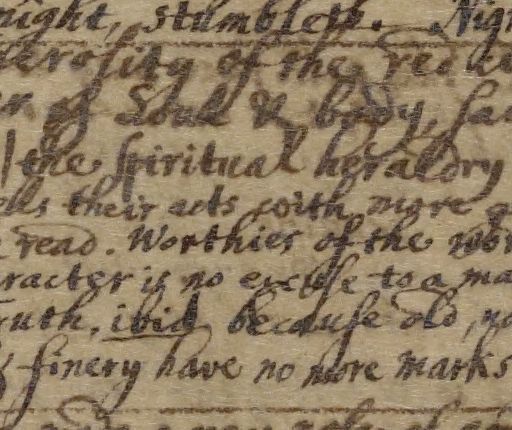 night, stumbleth. Nig
erosity of the red
er of Soul & body, sa
the spiritual heraldry
ells their acts with more
read. Worthies of the wor
racter is no excuse to a ma
ruth, ibid because old, no
& finery have no more marks